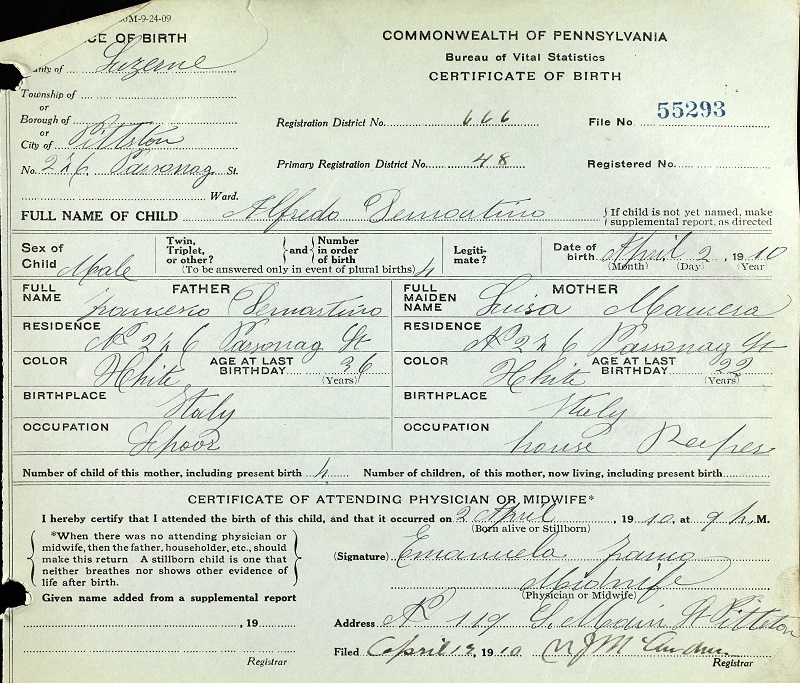 0M-9-24-09
CE OF BIRTH
COMMONWEALTH OF PENNSYLVANIA
Bureau of Vital Statistics
CERTIFICATE OF BIRTH
unty of Luzerne
Township of
or
Borough of
or
City of Pittston
Registration District No. 666
File No. 55293
No. 226 Parsonag St.
Primary Registration District No. 48
Registered No.
Ward.
FULL NAME OF CHILD Alfredo Demartino
{ If child is not yet named, make supplemental report, as directed
Sex of Child Male
Twin, Triplet, or other? { and } Number in order of birth
(To be answered only in event of plural births) 4
Legitimate?
Date of birth April 2, 1910
(Month) (Day) (Year
FATHER
FULL NAME Francesco Demartino
RESIDENCE N 226 Parsonag St
COLOR White
AGE AT LAST BIRTHDAY 36 (Years)
BIRTHPLACE Italy
OCCUPATION
MOTHER
FULL MAIDEN NAME Luisa
RESIDENCE N 226 Parsonag St
COLOR White
AGE AT LAST BIRTHDAY 22 (Years)
BIRTHPLACE Italy
OCCUPATION house Keeper
Number of child of this mother, including present birth 4. Number of children, of this mother, now living, including present birth
CERTIFICATE OF ATTENDING PHYSICIAN OR MIDWIFE*
I hereby certify that I attended the birth of this child, and that it occurred on 2 April, 1910. at 9 P. M.
(Born alive or Stillborn)
{ *When there was no attending physician or midwife, then the father, householder, etc., should make this return A stillborn child is one that neither breathes nor shows other evidence of life after birth. }
(Signature) Emanuela
Midwife
(Physician or Midwife)
Given name added from a supplemental report
, 19
Address N 119 S. Main St Pittston
Filed April 12, 1910
Registrar
Registrar